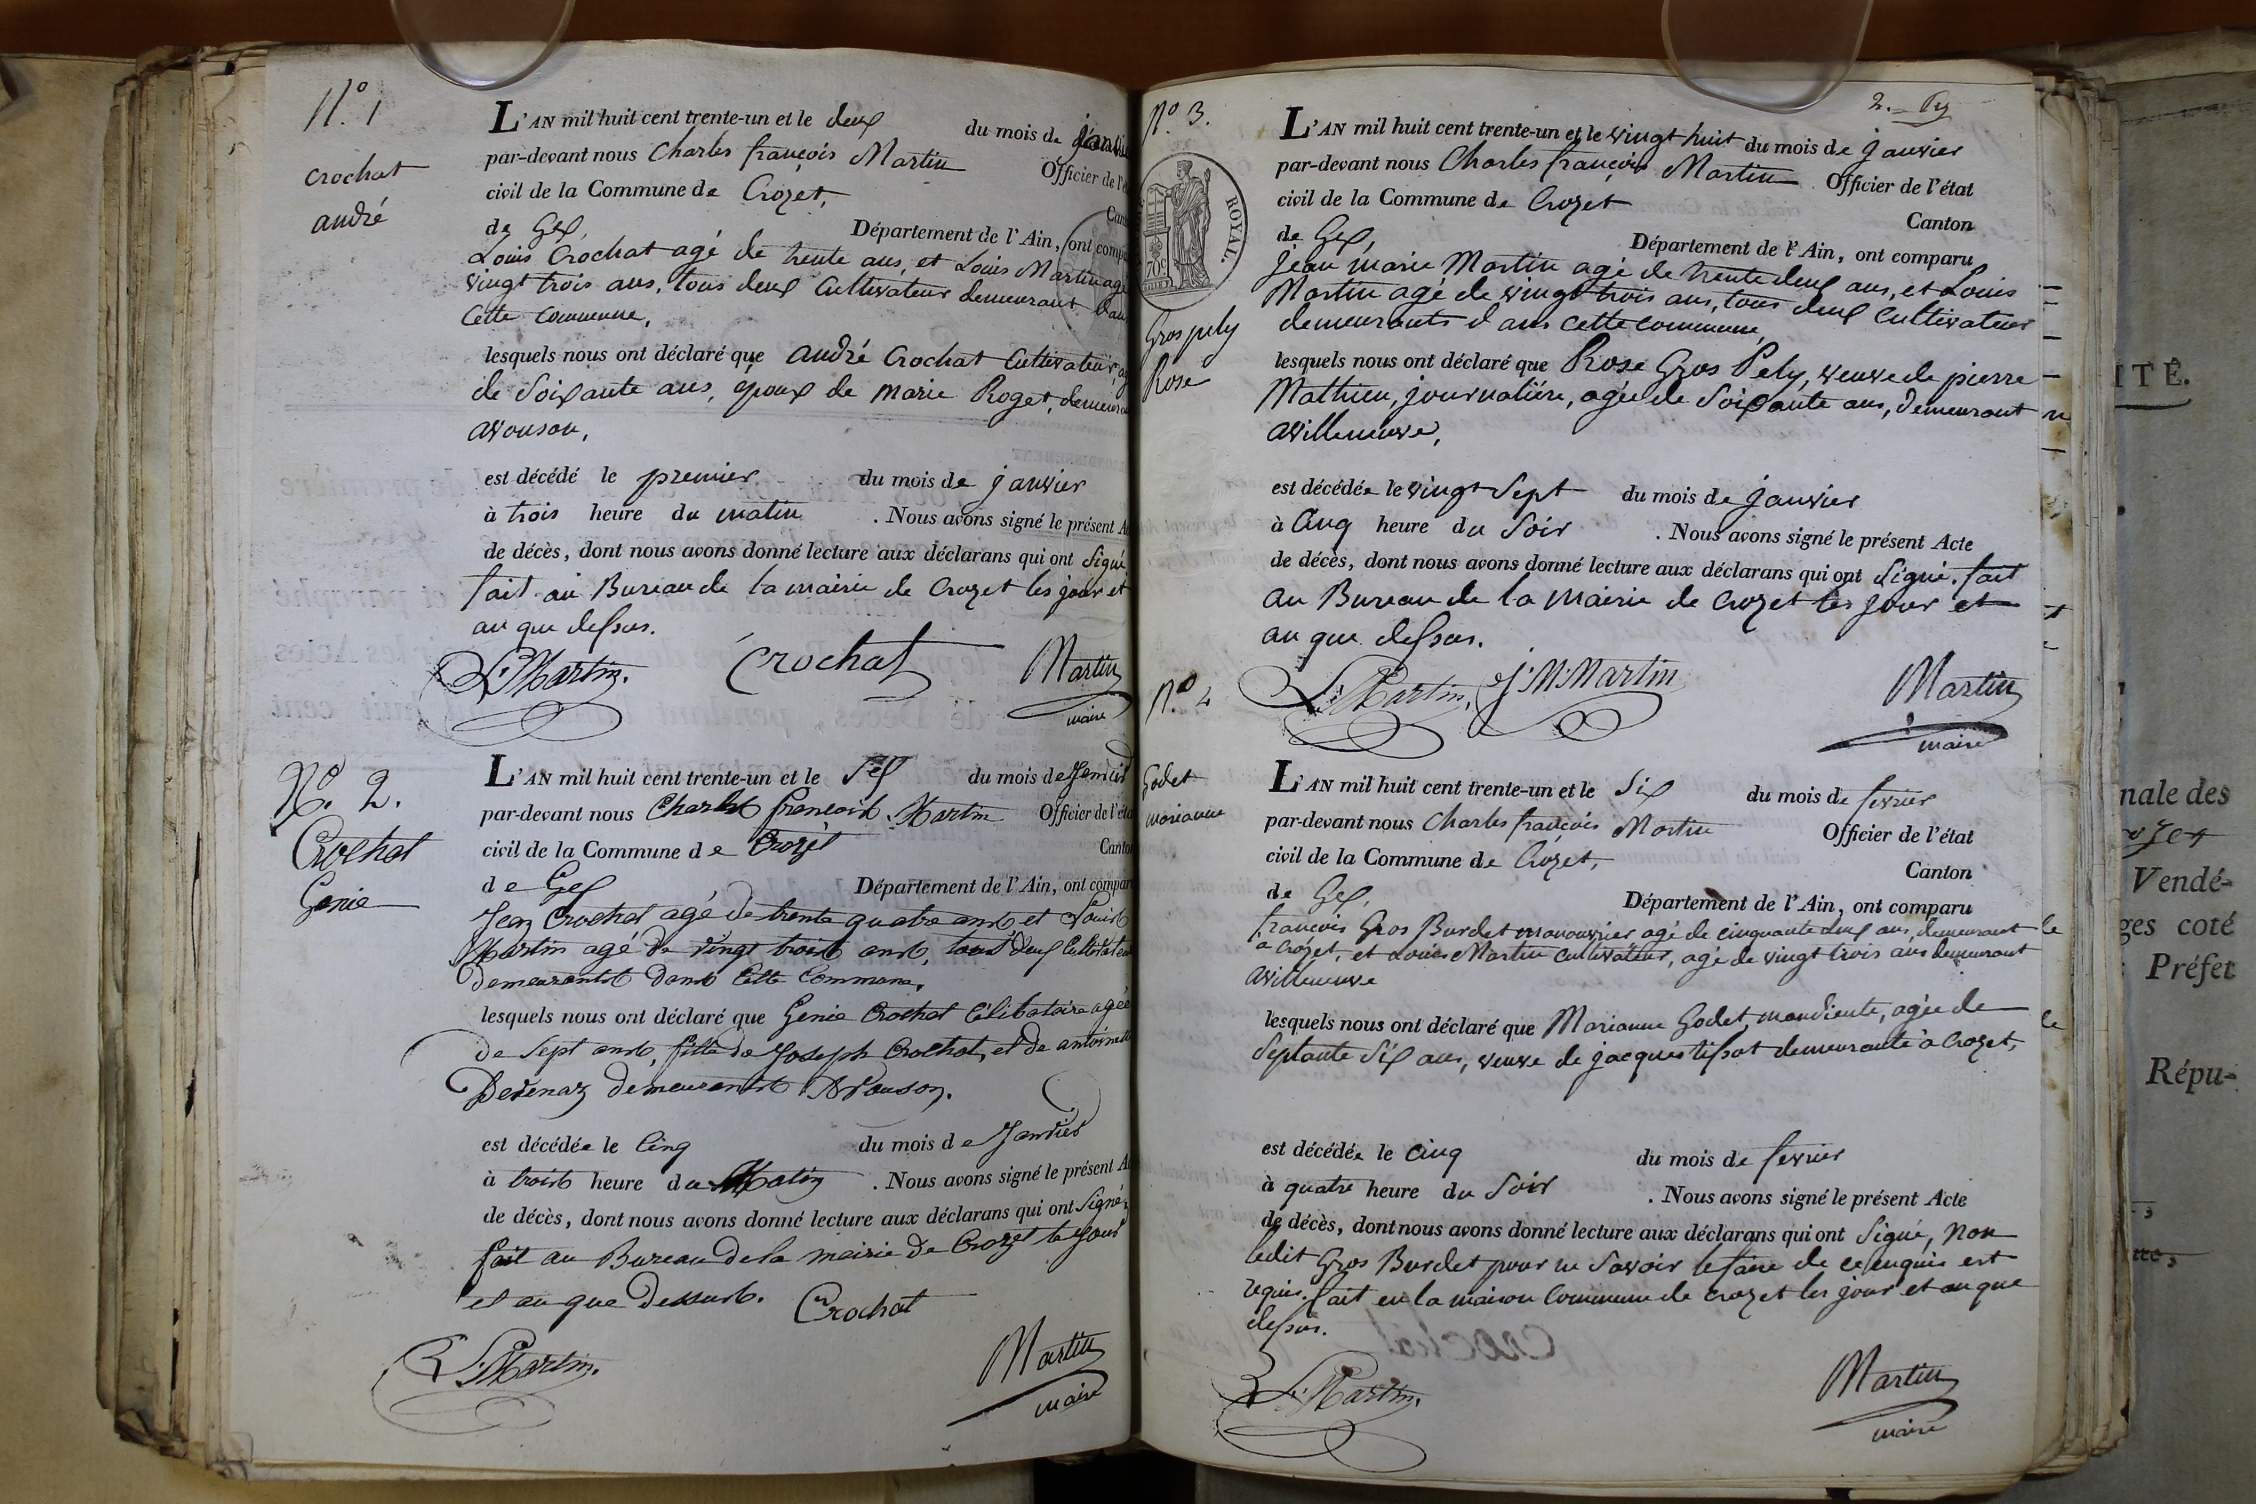 N.º 1
crochat
andré
L'AN mil huit cent trente-un et le deux du mois de janvi
par-devant nous Charles françois Martin Officier de l'é
civil de la Commune de Crozet, Can
de Gex, Département de l'Ain, ont compa
Louis Crochat agé de trente ans, et Louis Martin agé
vingt trois ans, tous deux Cultivateur demeurant dan
cette commune,
lesquels nous ont déclaré que andré Crochat Cultivateur, ag
de Soixante ans, époux de Marie Roget, demeura
avouson,
est décédé le premier du mois de janvier
à trois heure du matin . Nous avons signé le présent A
de décès, dont nous avons donné lecture aux déclarans qui ont signé
fait au Bureau de la mairie de Crozet les jour et
an que dessus.
L. Martin. Crochat Martin
maire
N.º 2.
Crochat
Genie
L'AN mil huit cent trente-un et le Six du mois de Janvier
par-devant nous Charles francois Martin Officier de l'éta
civil de la Commune de Crozet Canton
de Gex Département de l'Ain, ont compar
Jean Crochat agé de trente quatre ans et Louis
Martin agé de vingt trois ans, tous deux Cultivateu
demeurants dans cette Commune.
lesquels nous ont déclaré que Genie Crochat Célibataire agée
de Sept ans, fille de Joseph Crochat, et de antoinette
Devenaz demeurants Avouson.
est décédée le Cinq du mois de Janvier
à trois heure du Matin . Nous avons signé le présent A
de décès, dont nous avons donné lecture aux déclarans qui ont Signé,
fait au Bureau de la mairie de Crozet le Jour
et an que dessus. Crochat
L. Martin. Martin
maire
2.
N.º 3.
ROYAL.
70c
Gros pely
Rose
L'AN mil huit cent trente-un et le vingt huit du mois de janvier
par-devant nous Charles françois Martin Officier de l'état
civil de la Commune de Crozet Canton
de Gex, Département de l'Ain, ont comparu
jean marie Martin agé de trente deux ans, et Louis
Martin agé de vingt trois ans, tous deux cultivateur
demeurants dans cette commune,
lesquels nous ont déclaré que Rose Gros Pely, veuve de pierre
Mathieu, journalière, agée de Soixante ans, demeurant
avilleneuve,
est décédée le vingt Sept du mois de janvier
à Cinq heure du Soir . Nous avons signé le présent Acte
de décès, dont nous avons donné lecture aux déclarans qui ont Signé. fait
au Bureau de la Mairie de Crozet les jour et
an que dessus.
L. Martin, J. M. Martin Martin
maire
N.º 4
Godet
marianne
L'AN mil huit cent trente-un et le Six du mois de fevrier
par-devant nous Charles françois Martin Officier de l'état
civil de la Commune de Crozet, Canton
de Gex, Département de l'Ain, ont comparu
françois Gros Burdet manouvrier agé de cinquante deux ans, demeurant
a crozet, et Louis Martin cultivateur, agé de vingt trois ans demeurant
avilleneuve
lesquels nous ont déclaré que Marianne Godet, mandiente, agée de
Septante Six ans, veuve de jacques tissot demeurante à Crozet,
est décédée le cinq du mois de fevrier
à quatre heure du Soir . Nous avons signé le présent Acte
de décès, dont nous avons donné lecture aux déclarans qui ont Signé, Non
ledit Gros Burdet pour ne Savoir le faire de ce enquis est
requis. fait en la maison Commune de crozet les jour et an que
dessus.
L. Martin. Martin
maire
ITÉ.
nale des
ozet
Vendé-
ges coté
Préfet
Répu-